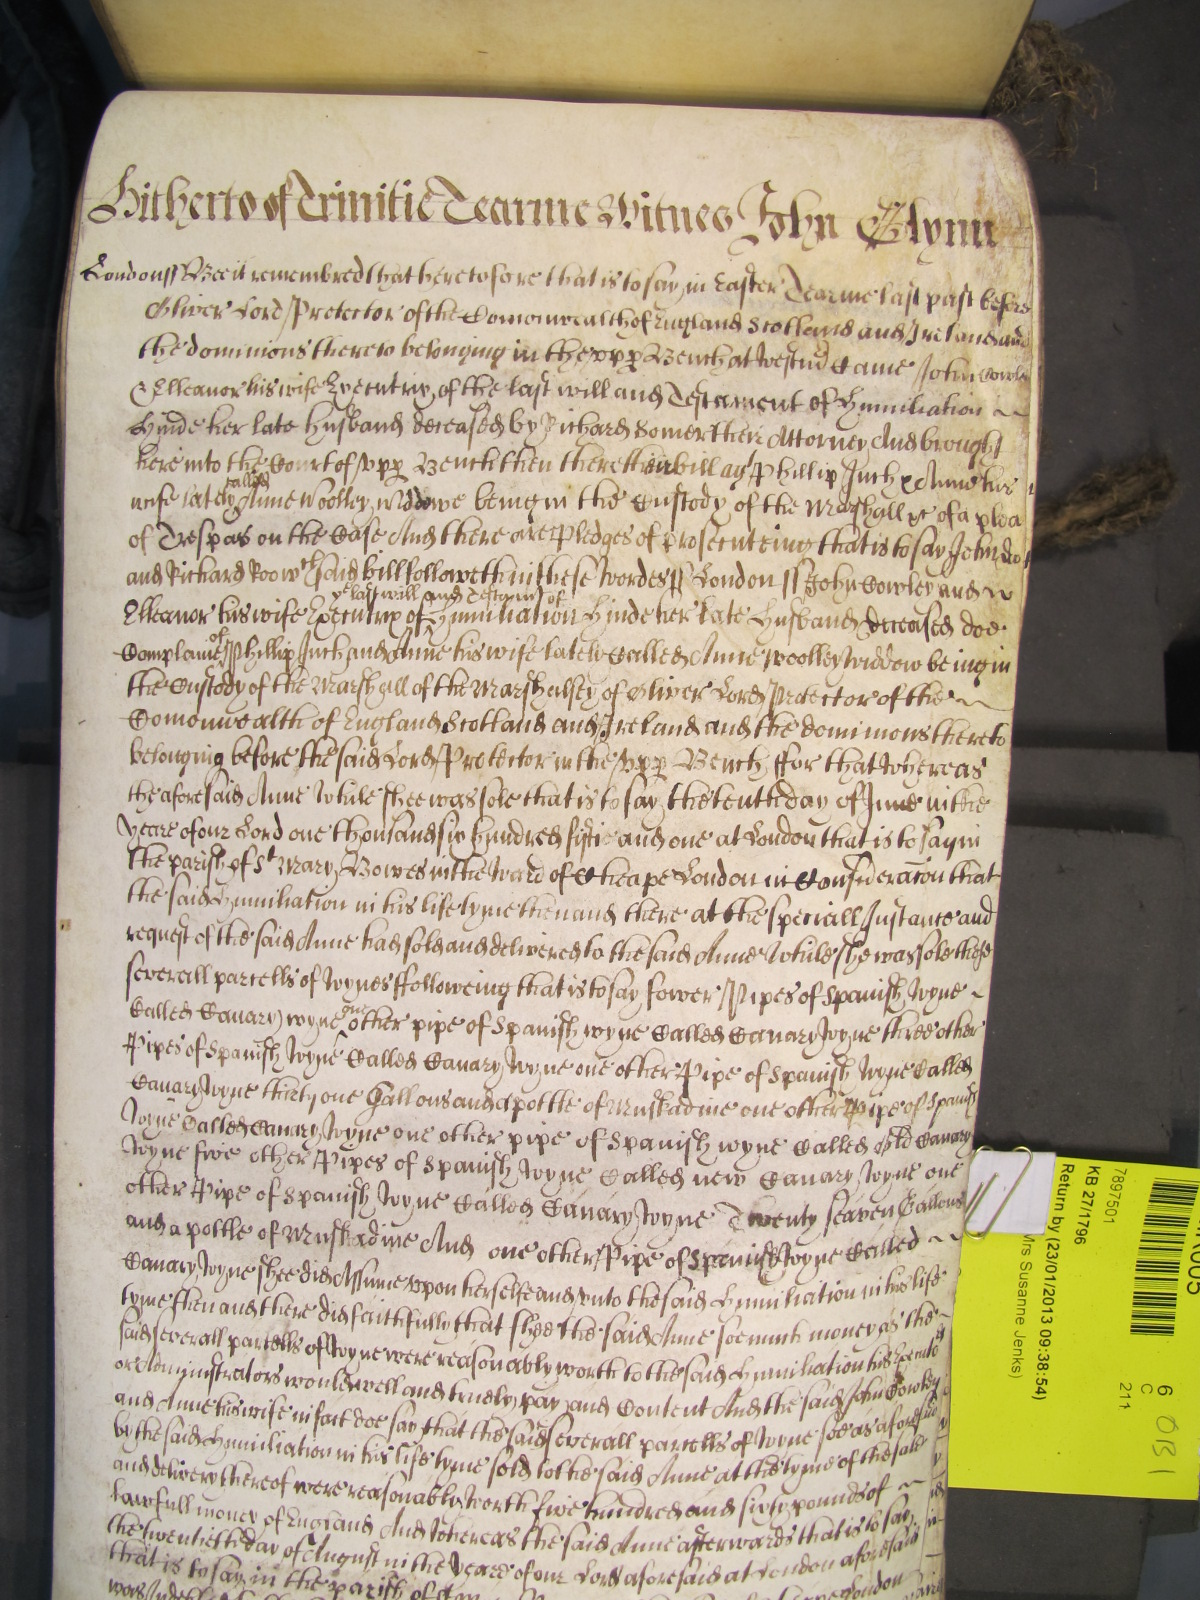 Hitherto of Trinitie Tearme Witnes John Glynn
London ss Bee it remembred that heretofore that is to say in Easter Tearme last past before
Oliver Lord Protector of the Comonwealth of England Scotland and Ireland and
the dominions thereto belonging in the upp Bench at Westmr Came John Cowley
& Elleanor his wife Executrix of the last will and Testament of Humiliation
Hinde her late husband deceased by Richard Somer their Attorney And brought
here into the Court of upp Bench then there their bill agt Phillip Inch & Anne his
wife lately called Anne Woolley widdowe being in the Custody of the Marshall &c of a plea
of Trespas on the Case And there are Pledges of prosecuteing that is to say John doe
and Richard Roo wch said bill followeth in these wordes ss London ss John Cowley and
Elleanor his wife Executrix of ye last will and Testamt of Humiliation Hinde her late husband deceased doe
Complaine of Phillip Inch and Anne his wife late Called Anne Woolley widdow being in
the Custody of the Marshall of the Marshalsey of Oliver Lord Protector of the
Comonwealth of England Scotland and Ireland and the dominions thereto
belonging before the said Lord Protector in the upp Bench ffor that whereas
the aforesaid Anne while shee was sole that is to say the tenth day of June in the
yeare of our Lord one thousand six hundred fiftie and one at London that is to say in
the parish of St Mary Bowes in the Ward of Cheape London in Consideracon that
the said Humiliation in his life tyme then and there at the speciall Instance and
request of the said Anne had sold and delivered to the said Anne while she was sole these
severall parcells of wynes ffolloweing that is to say fower Pipes of Spanish wyne
Called Canary wyne one other pipe of Spanish wyne Called Canary wyne three other
Pipes of Spanish wyne Called Canary wyne one other Pipe of Spanish wyne Called
Canary wyne thirty one Gallons and a pottle of Muskadine one other Pipe of Spanish
wyne Called Canary wyne one other pipe of Spanish wyne Called old Canary
wyne five other Pipes of Spanish wyne Called new Canary wyne one
other Pipe of Spanish wyne Called Canary wyne Twenty seaven Gallons
and a pottle of Muskadine And one other Pipe of Spanish wyne Called
Canary wyne shee did Assume upon herselfe and unto the said Humiliation in his life
tyme then and there did faithfully that shee the said Anne soe much money as the
said severall parcells of wyne were reasonably worth to the said Humiliation his Executors
or Administrators would well and truely pay and Content And the said John Cowley
and Anne his wife in fact doe say that the said severall parcells of wyne soe as aforesaid
by the said Humiliation in his life tyme sold to the said Anne at the tyme of the sale
and delivery thereof were reasonably worth five hundred and sixty pounds of
lawfull money of England And whereas the said Anne afterwards that is to say
the twentieth day of August in the yeare of our Lord aforesaid at London aforesaid
that is to say in the parish of
7897501
KB 27/1796
Return by (23/01/2013 09:38:54)
Mrs Susanne Jenks)
6
C
211